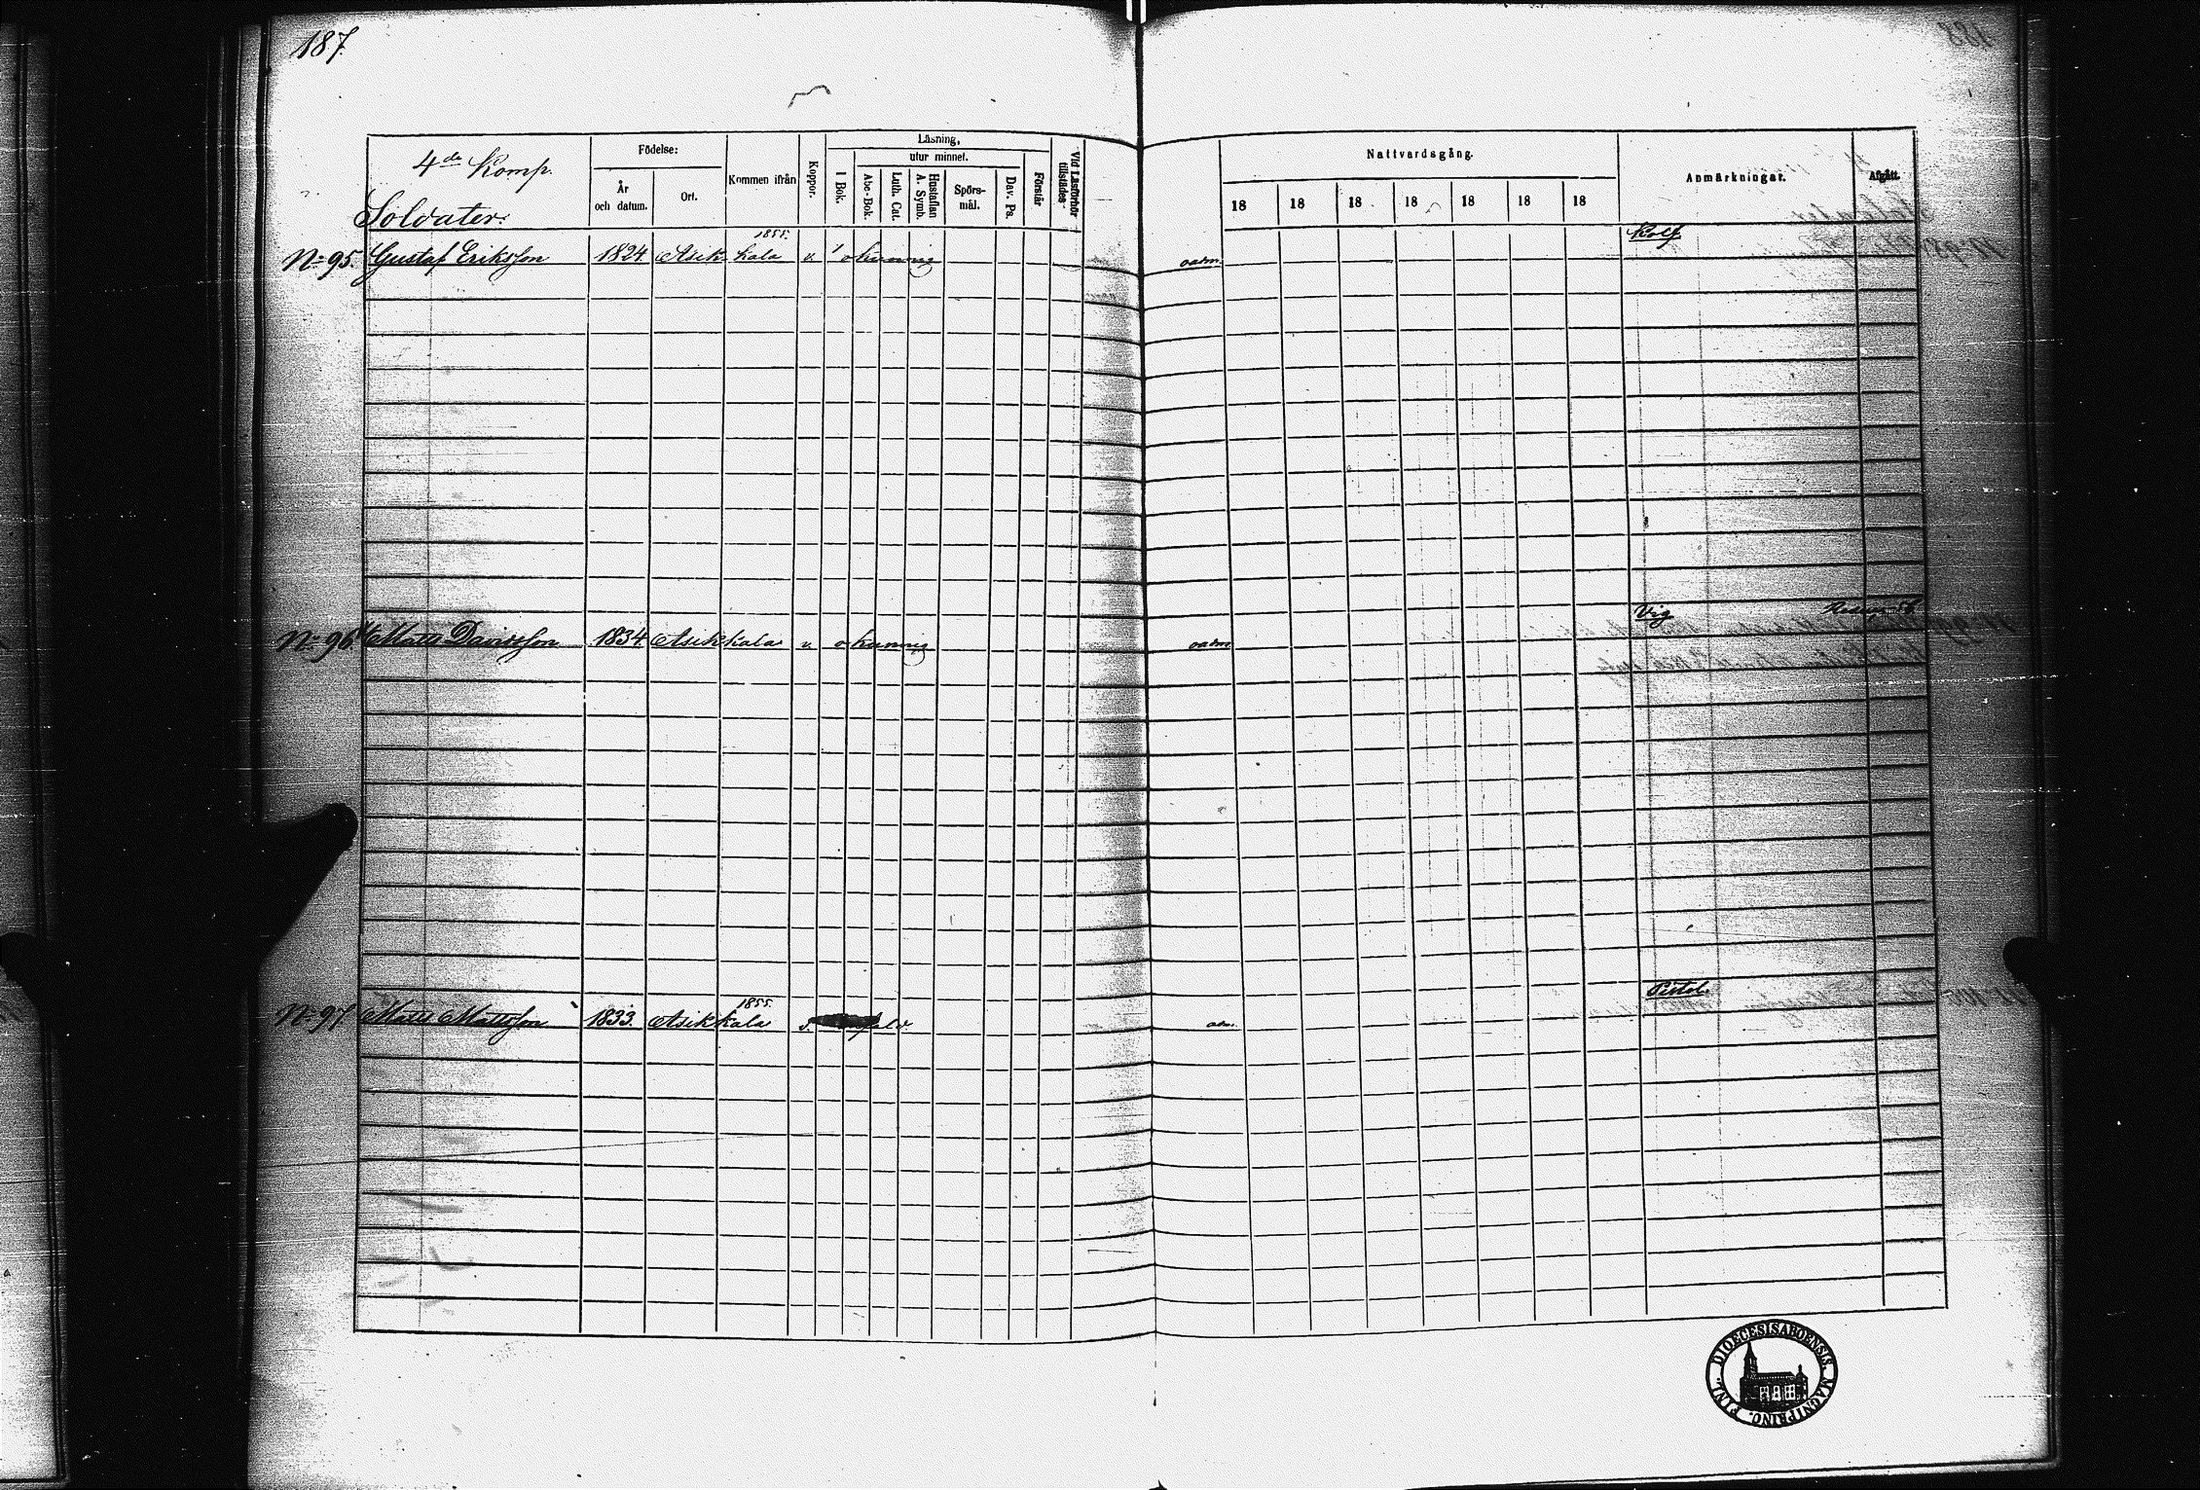 187.
4de Komp.
Soldater.
Födelse:
År och datum.
Ort.
Kommen ifrån
Koppor.
Läsning,
utur minnet.
I Bok.
Abc-Bok.
Luth. Cat.
Hustaflan A. Symb.
Spörs-mål.
Dav. Ps.
Förstår
Vid Läsförhör tillstädes
Nattvardsgång.
18 18 18 18 18 18 18
Anmärkningar.
Afgått.
1855. Kolf
No 95. Gustaf Eriksson 1824 Asikkala v. okunnig oadm.
Vig
No 96. Matts Davidsson 1834. Asikkala v. okunnig oadm
1855. Pistol.
No 97. Matts Mattsson 1833. Asikkala adm.
DIOECESIS ABOENSIS. MAGNI PRINC. FINL.